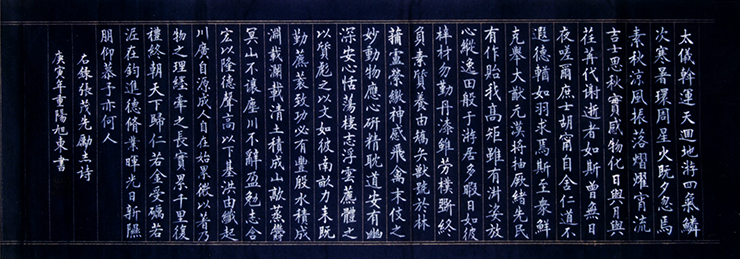 太儀斡運天迴地游四氣鱗
次寒暑環周星火既夕忽焉
素秋涼風振落熠燿宵流
吉士思秋寔感物化日與月與
荏苒代謝逝者如斯曾無日
夜嗟爾庶士胡寧自舍仁道不
遐德輶如羽求焉斯至眾鮮
克舉大猷元漠將抽厥緒先民
有作貽我高矩雖有淑姿放
心縱逸田般于游居多暇日如彼
梓材勿勤丹漆雖勞樸斲終
負素質養由矯矢獸號於林
蒲盧縈繳神感飛禽末伎之
妙動物應心研精耽道安有幽
深安心恬蕩棲志浮雲體之
以質彪之以文如彼南畝力耒既
勤藨蓘致功必有豐殷水積成
淵載瀾載清土積成山歊蒸鬱
冥山不讓塵川不辭盈勉志含
宏以隆德聲高以下基洪由纖起
川廣自源成人自在始累微以著乃
物之理纆牽之長實累千里復
禮終朝天下歸仁若金受礪若
泥在鈞進德脩業暉光日新隰
朋仰慕予亦何人
右錄張茂先勵志詩
庚寅年重陽旭東書